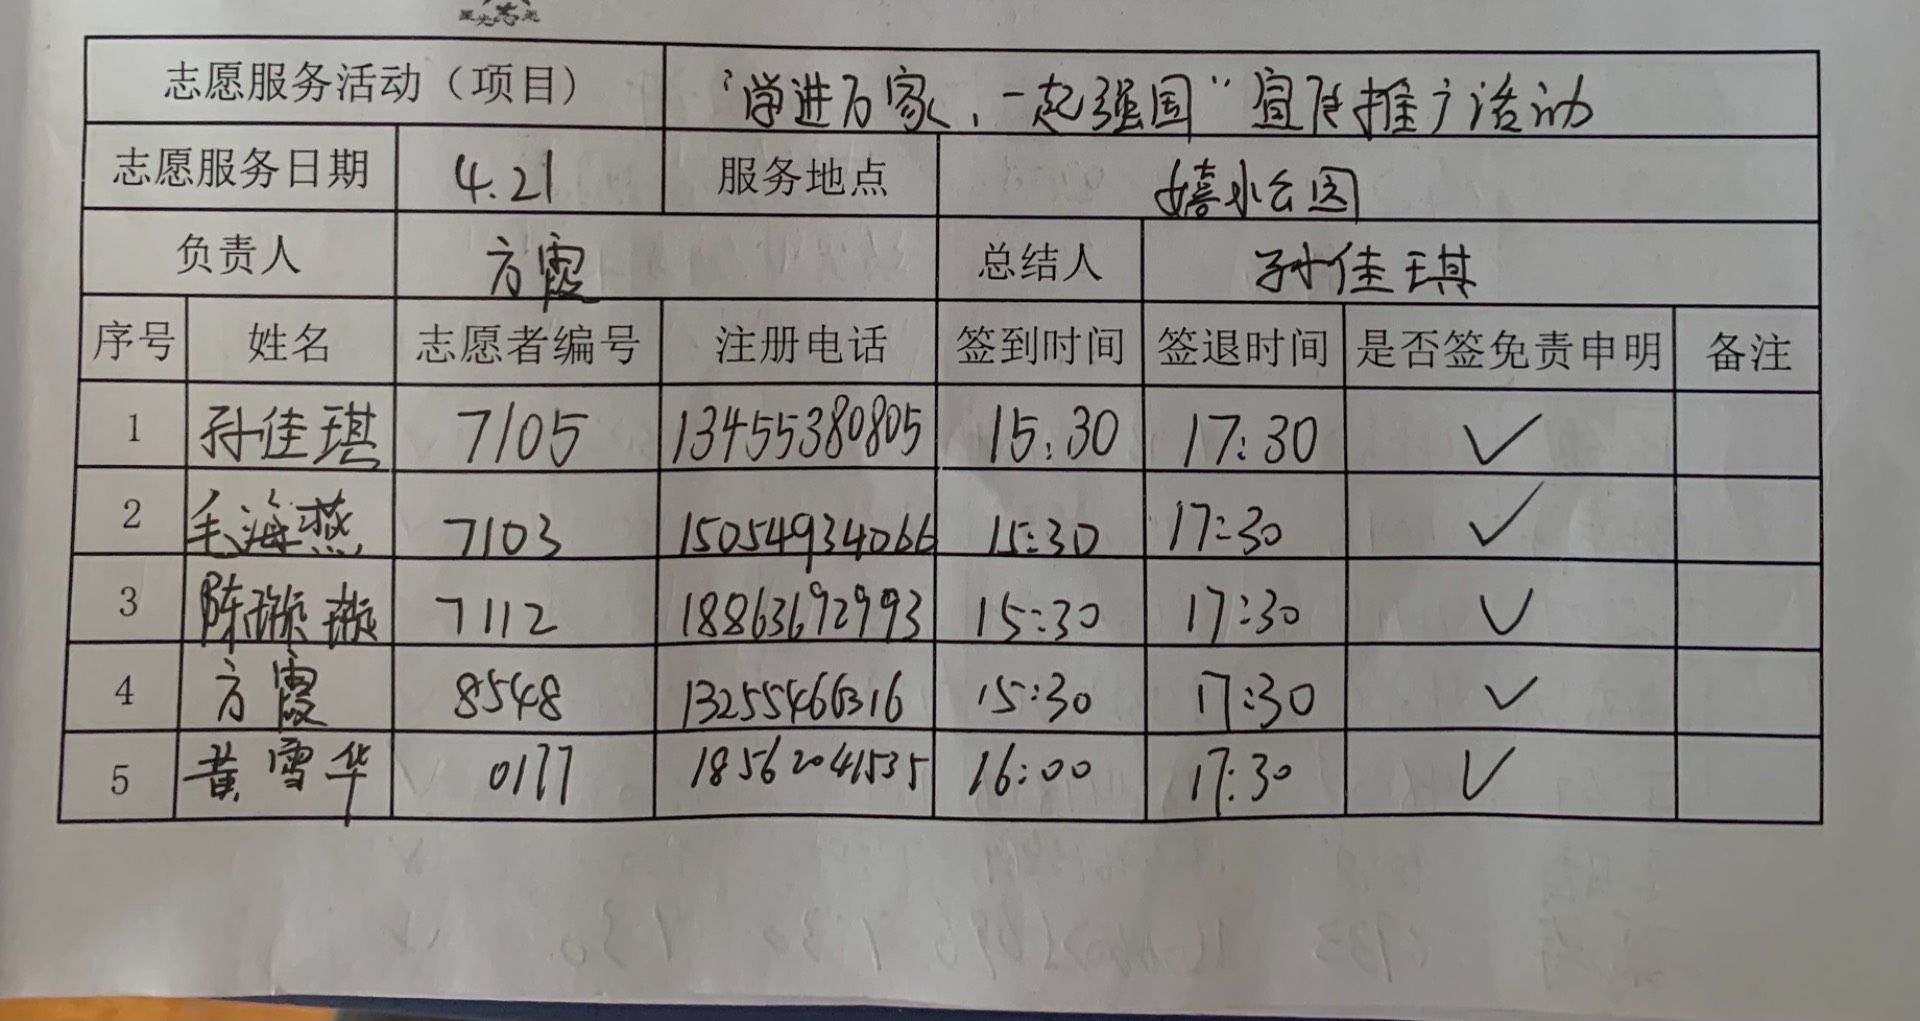 星光志愿
志愿服务活动（项目） “学进万家，一起强国”宣传推广活动
志愿服务日期 4.21 服务地点 嬉水公园
负责人 方霞 总结人 孙佳琪
序号 姓名 志愿者编号 注册电话 签到时间 签退时间 是否签免责申明 备注
1 孙佳琪 7105 13455380805 15:30 17:30 ✓
2 毛海燕 7103 15054934066 15:30 17:30 ✓
3 陈璇璇 7112 18863692993 15:30 17:30 ✓
4 方霞 8548 13255466316 15:30 17:30 ✓
5 黄雪华 0177 18562041535 16:00 17:30 ✓